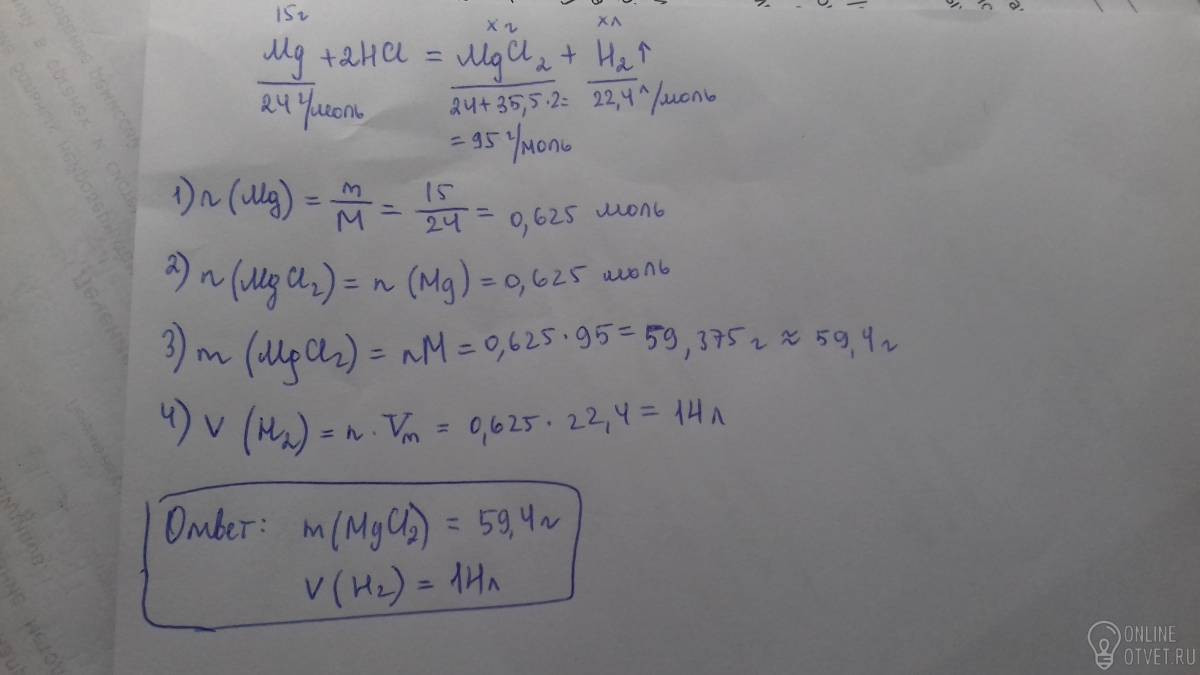 15г хг хл
Mg + 2HCl = MgCl₂ + H₂↑
24 г/моль 24+35,5·2= 22,4 л/моль
= 95 г/моль
1) n (Mg) = m/M = 15/24 = 0,625 моль
2) n (MgCl₂) = n (Mg) = 0,625 моль
3) m (MgCl₂) = nM = 0,625·95 = 59,375 г ≈ 59,4 г
4) V (H₂) = n · Vm = 0,625 · 22,4 = 14 л
Ответ: m(MgCl₂) = 59,4 г
V (H₂) = 14 л
ONLINE
OTVET.RU